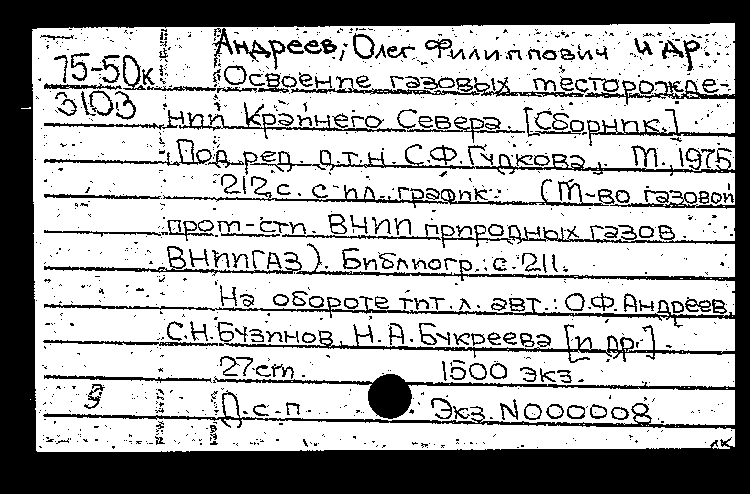 Андреев, Олег Филиппович и др.
75-50к Освоение газовых месторожде-
3103
нии Крайнего Севера. [Сборник.]
Под ред. д.т.н. С.Ф.Гудкова. М., 1975
212 с. с ил., график. (М-во газовой
пром-сти. ВНИИ природных газов
ВНИИГАЗ). Библиогр.: с. 211.
На обороте тит. л. авт.: О.Ф.Андреев,
С.Н.Бузинов, Н.А.Букреева [и др.].
27 см. 1500 экз.
9 Д.с.п. Экз. N000008